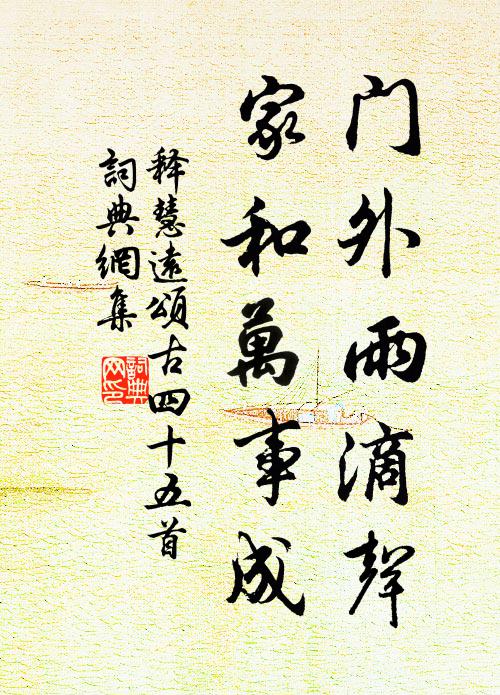 门外雨滴聲
家和萬事成
释慧遠頌古四十五首
詞典網集
詞典網印